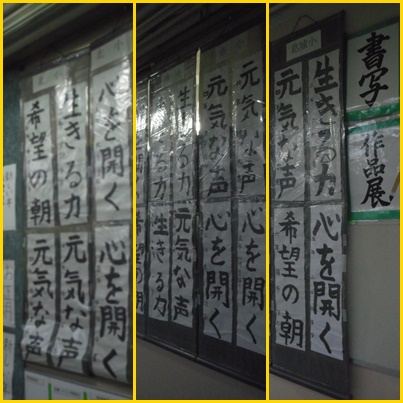 書写
作品展
生きる力
心を開く
元気な声
希望の朝
元気な声
心を開く
元気な声
心を開く
生きる力
元気な声
生きる力
心を開く
心を開く
生きる力
元気な声
希望の朝
元気な声